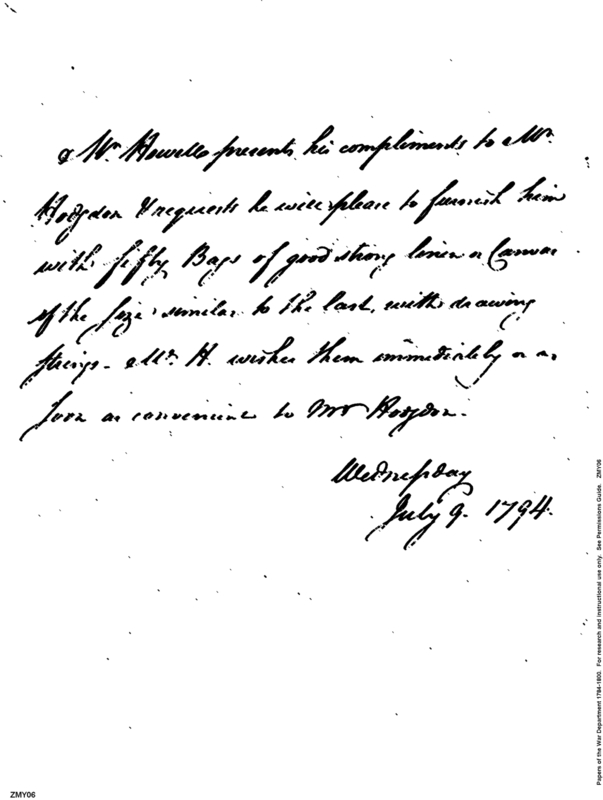 Mr. Howell presents his compliments to Mr.
Hodgdon & requests he will please to furnish him
with fifty Bags of good strong linen or Canvas
of the size similar to the last, with drawing
strings - Mr. H. wishes them immediately or as
soon as convenient to Mr Hodgdon.
Wednesday
July 9. 1794.
Papers of the War Department 1784-1800. For research and instructional use only. See Permissions Guide. ZMY06
ZMY06